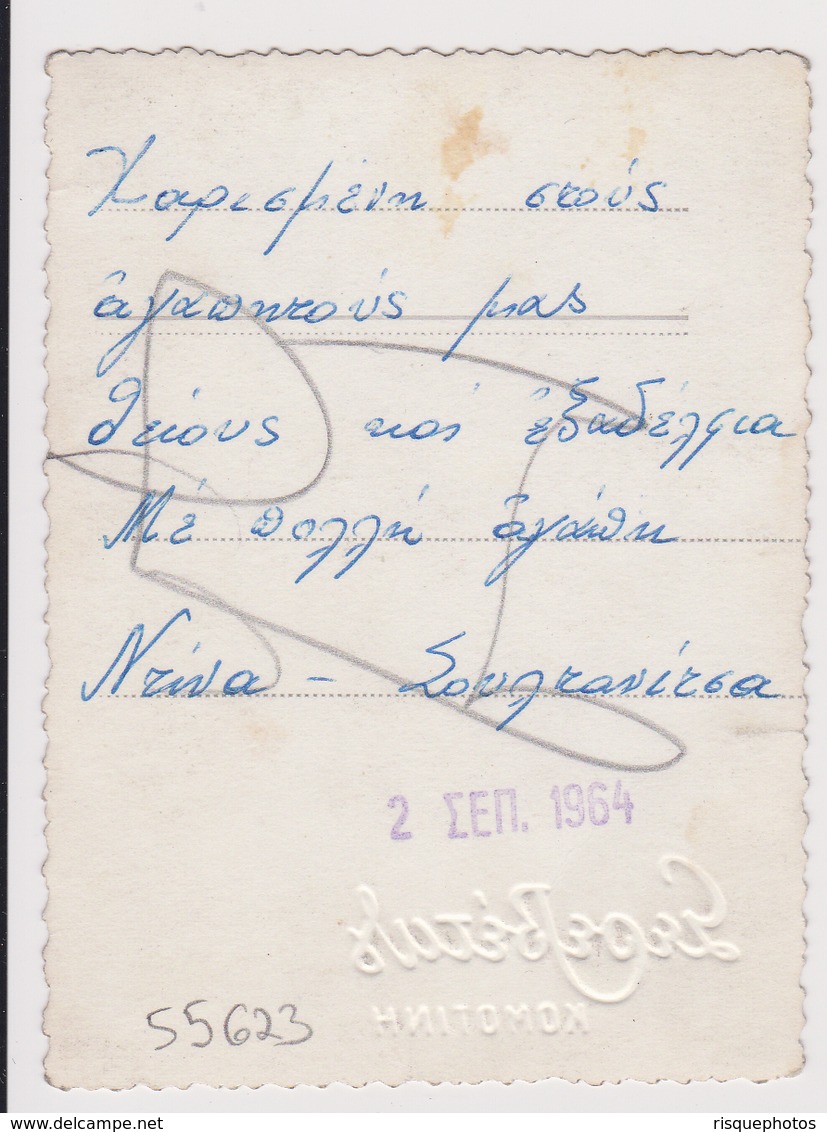 Χαρισμένη στούς
ἀγαπητούς μας
θείους καί ἐξαδέλφια
Μέ πολλή ἀγάπη
Ντίνα - Σουλτανίτσα
2 ΣΕΠ. 1964
ΚΟΜΟΤΙΝΗ
55623
www.delcampe.net
risquephotos